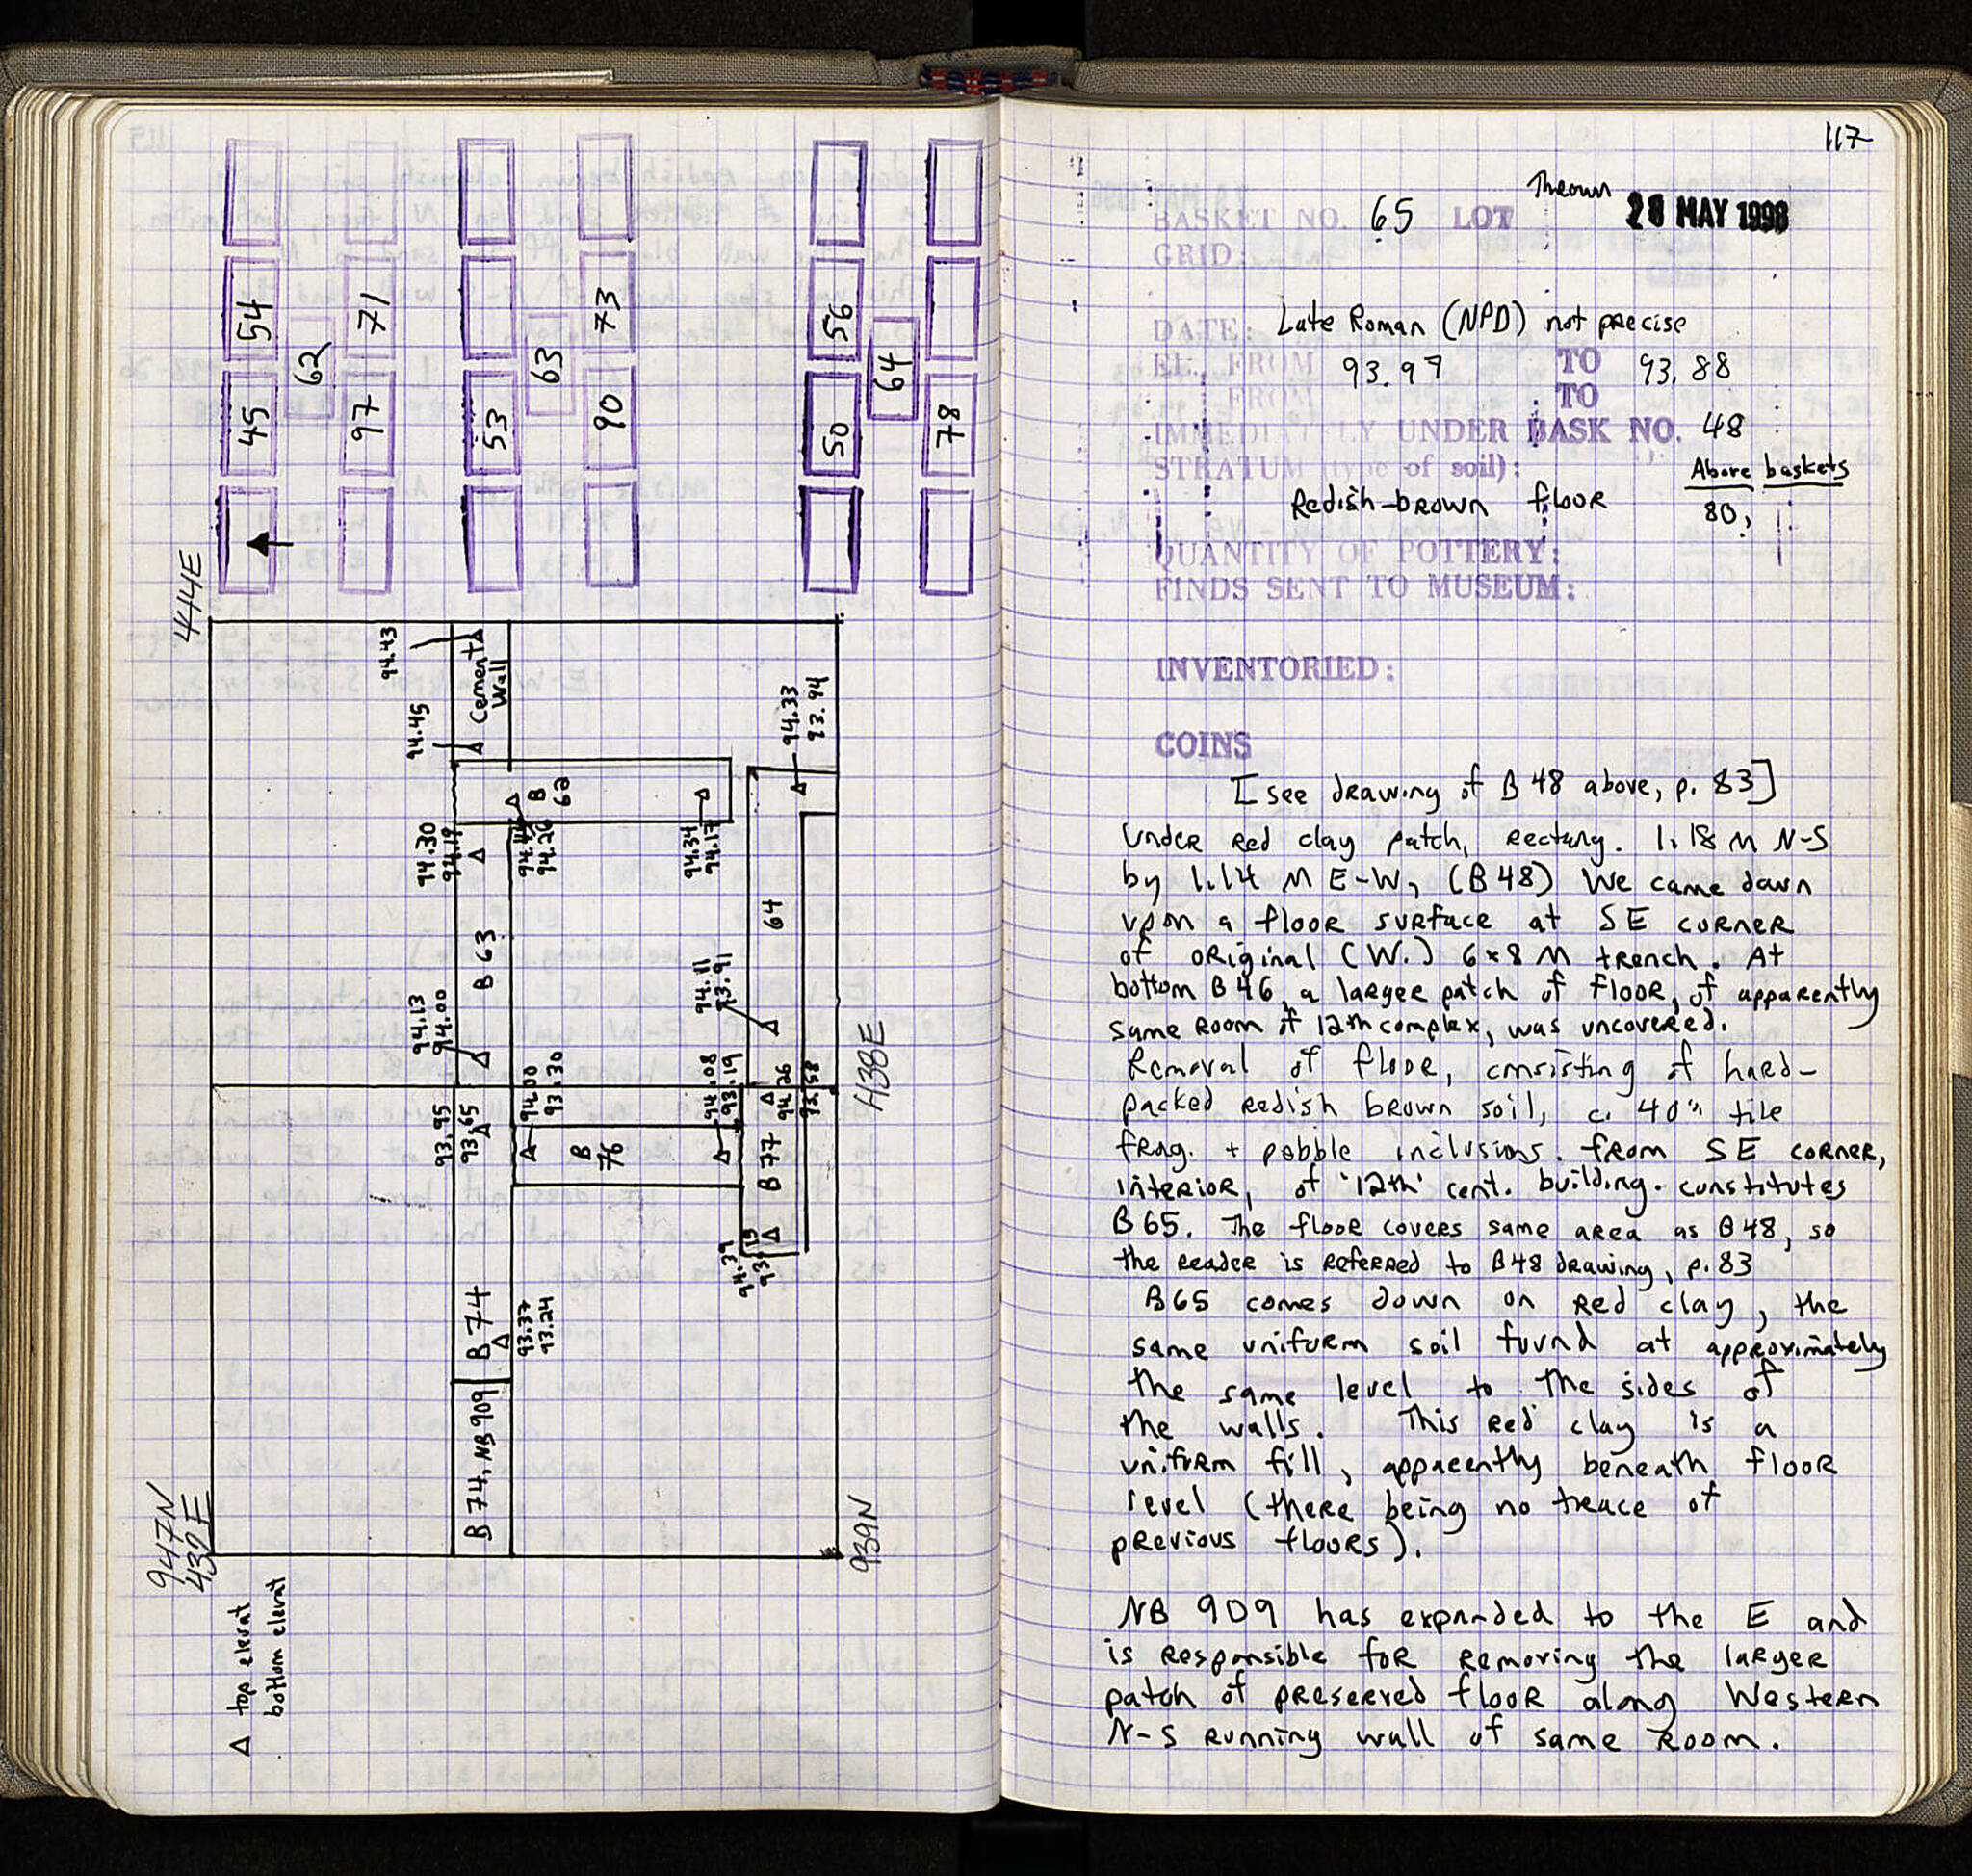 54
45
62
71
97
53
63
73
90
56
50
64
78
444E
94.43
94.45
Cement
Wall
94.33
93.94
B
62
94.30
94.19
94.26
94.34
94.17
64
B 63
94.11
93.91
94.13
94.00
438E
94.00
93.30
94.08
93.19
94.26
93.58
93.95
93.65
B
76
B 77
94.39
B 74
93.37
93.24
B 74, NB 909
947N
432E
939N
△ top elevat
bottom elevat
117
Thrown
BASKET NO. 65 LOT 28 MAY 1998
GRID
DATE: Late Roman (NPD) not precise
EL. FROM 93.97 TO 93.88
FROM TO
IMMEDIATELY UNDER BASK NO. 48
STRATUM (type of soil): Above baskets
Redish-brown floor 80,
QUANTITY OF POTTERY:
FINDS SENT TO MUSEUM:
INVENTORIED:
COINS
[see drawing of B 48 above, p. 83]
Under Red clay patch, rectang. 1.18 m N-S
by 1.14 m E-W, (B 48) We came down
upon a floor surface at SE corner
of original (W.) 6x8 m trench. At
bottom B 46, a larger patch of floor, of apparently
same room of 12th complex, was uncovered.
Removal of floor, consisting of hard-
packed redish brown soil, c. 40% tile
frag. + pebble inclusions. from SE corner,
interior, of '12th' cent. building. constitutes
B 65. The floor covers same area as B 48, so
the reader is referred to B48 drawing, p. 83
B65 comes down on red clay, the
same uniform soil found at approximately
the same level to the sides of
the walls. This red clay is a
uniform fill, apparently beneath floor
level (there being no trace of
previous floors).
NB 909 has expanded to the E and
is responsible for removing the larger
patch of preserved floor along Western
N-S running wall of same room.